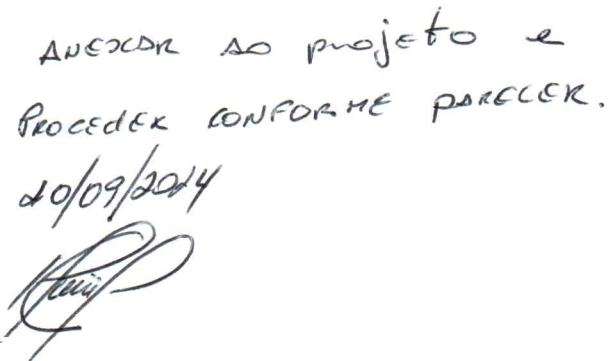 ANEXAR AO projeto e
PROCEDER CONFORME PARECER.
10/09/2014